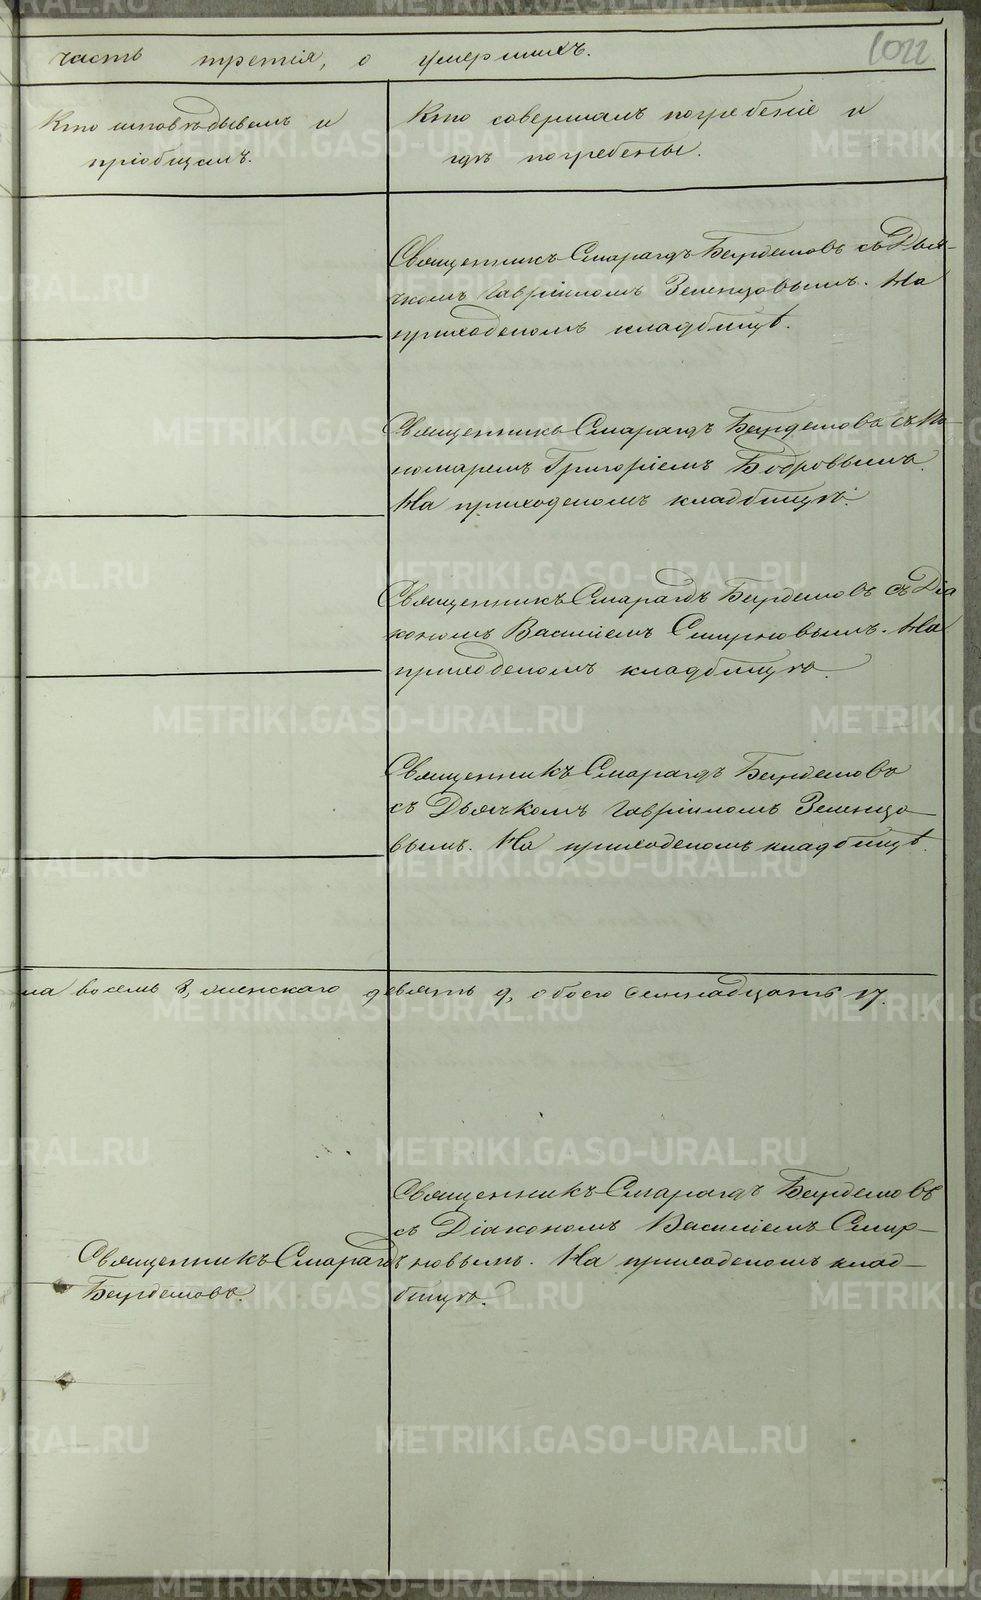 часть третія, о умершихъ.
1022
Кто исповѣдывалъ и
пріобщалъ.
Кто совершалъ погребеніе и
гдѣ погребены.
Священникъ Смарагдъ съ Дья-
чкомъ Гавріиломъ Зеленцовымъ. На
приходскомъ кладбищѣ.
Священникъ Смарагдъ съ По-
номаремъ Григоріемъ Бобровымъ.
На приходскомъ кладбищѣ.
Священникъ Смарагдъ съ Діа
кономъ Василіемъ Смирновымъ. На
приходскомъ кладбищѣ.
Священникъ Смарагдъ
съ Дьячкомъ Гавріиломъ Зеленцо-
вымъ. На приходскомъ кладбищѣ.
ла восемь 8, женскаго девять 9, обоего семнадцать 17.
Священникъ Смарагдъ
съ Діакономъ Василіемъ Смир-
новымъ. На приходскомъ клад-
бищѣ.
Священникъ Смарагдъ
METRIKI.GASO-URAL.RU